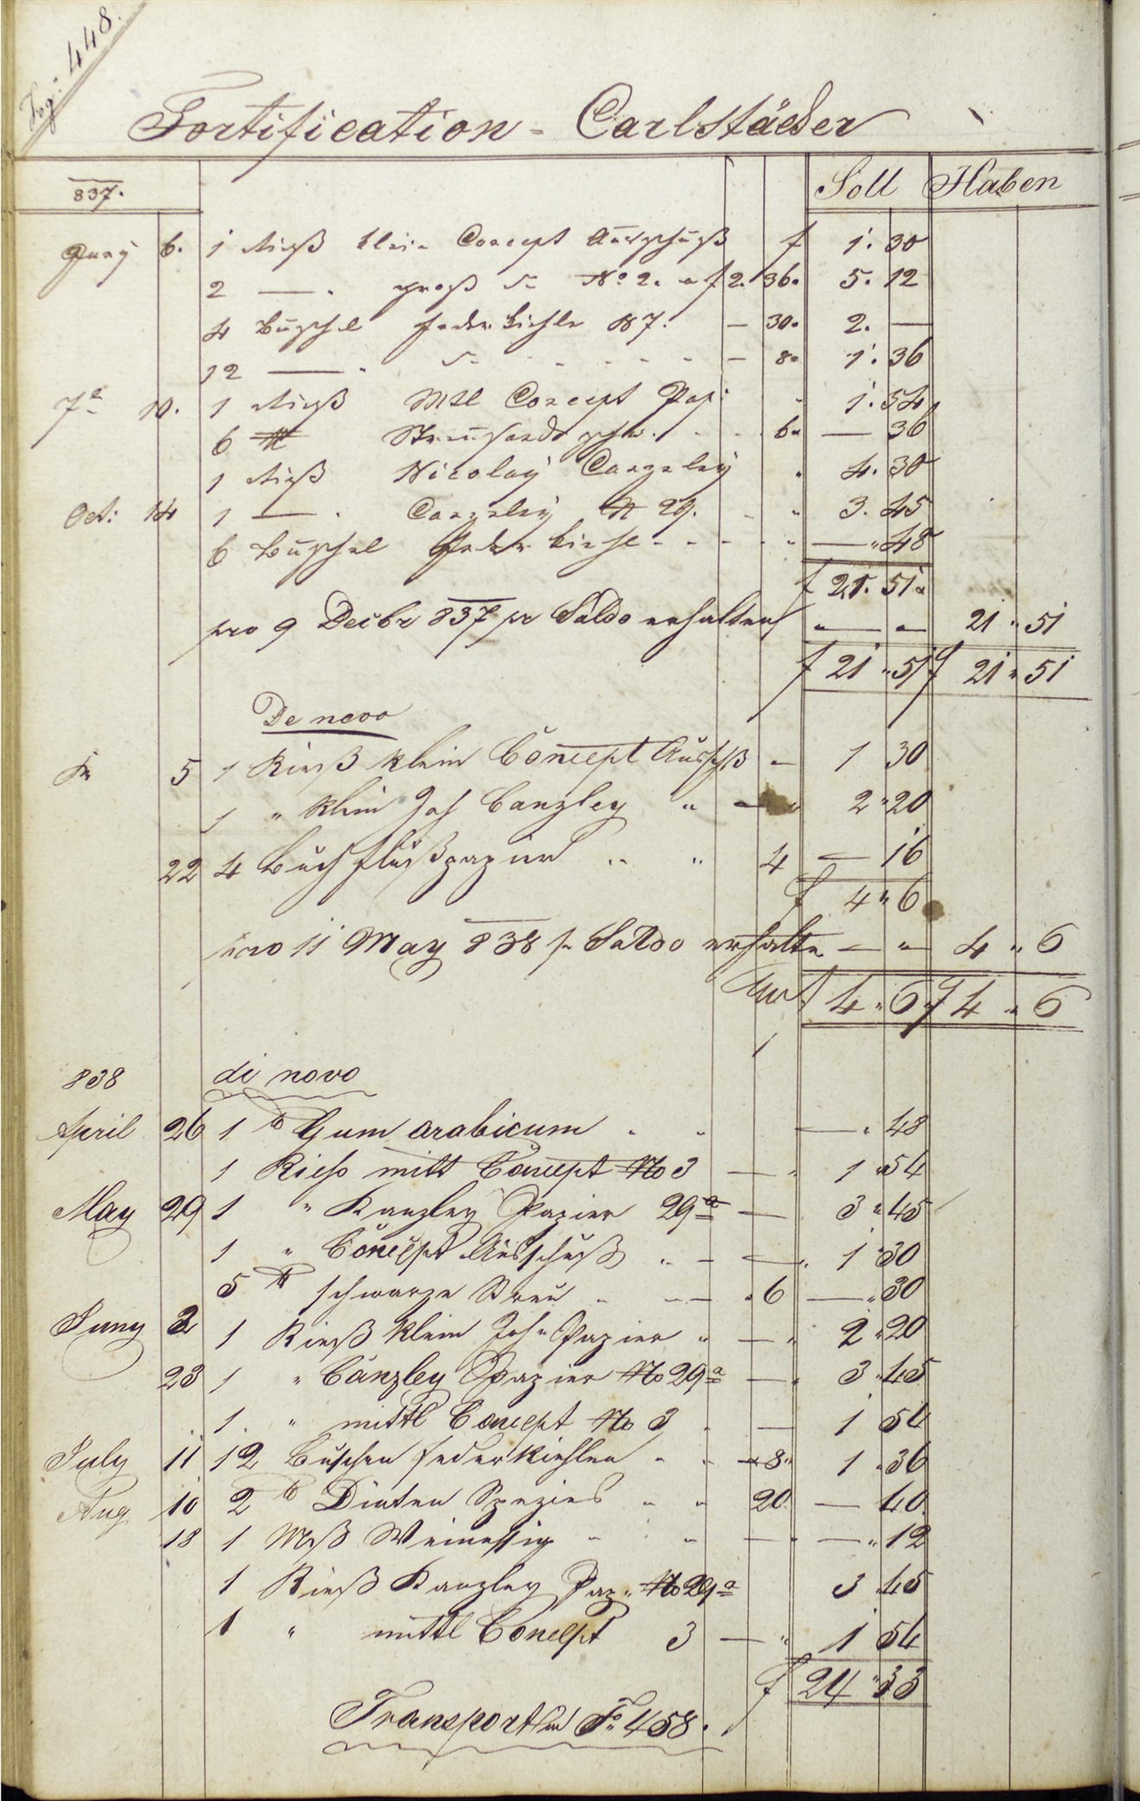 Pag: 448.
Fortification - Carlstädter
837.
Soll Haben
Juny 6. 1 Rieß klein Concept Ausschuß f 1. 30
2 — . groß do No 2. a f 2. 36. 5. 12
4 Buschl Federkiehle N 7. — 30. 2. —
12 — . do - - - - - — 8. 1. 36
7br 10. 1 Rieß Mtl Concept Pap: " 1. 54.
6 ℔ Streusand - - - 6. — 36
1 Rieß Nicolay Canzeley . 4. 30
Oct: 14 1 — . Canzeley N 29. - " 3. 45
6 Buschel Federkiehle - - - - " — " 48
f 21. 51.
pro 9 Decbr 837 pr Saldo erhalten " — " — 21 " 51
f 21 " 51 f 21 " 51
De novo
do 5 1 Rieß klein Concept Ausschß — 1 30
1 " klein Joh Canzley " — 2 " 20
22 4 Buch Flußpapier " " 4 — 16
f 4 " 6
pro 11 May 838 pr Saldo erhalten — " — 4 " 6
f 4 " 6 f 4 " 6
838 di novo
April 26 1 ℔ Gum arabicum " " — " 48
1 Rieß mitt Concept No 3 — " 1 " 54
May 29 1 " Kanzley Papier 29a — 3 " 45
1 " Concept Ausschuß " - — " 1 30
5 ℔ schwarze Streu " - — " 6 — " 30
Juny 2 1 Rieß klein Joh " Papier " — " 2 " 20
23 1 " Canzley Papier No 29a — " 3 " 45
1 " mittl Concept No 3 . — 1 54
July 11 12 Buschen Federkiehlen " " — 8 " 1 " 36
Aug 10 2 ℔ Dinten Spezies " " 20. — 40
18 1 Mß Weinessig - " — " — " 12
1 Rieß Kanzley Pap " No 29a 3 45
1 " mittl Concept 3 — " 1 54
f 24 " 33
Transport Fo 458.